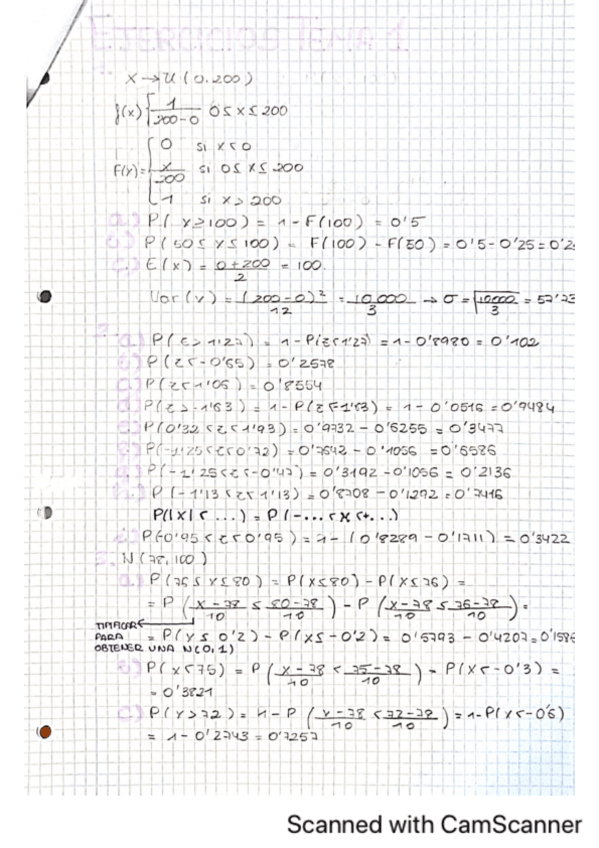 EJERCICIOS TEMA 1
X → U(0,200)
f(x) { 1/200-0 0≤x≤200
F(x)= { 0 si x<0
x/200 si 0≤x≤200
1 si x>200
a) P(x≥100) = 1-F(100) = 0'5
b) P(50≤x≤100) = F(100) - F(50) = 0'5-0'25=0'2
c) E(x) = 0+200/2 = 100.
Var(x) = (200-0)²/12 = 10.000/3 → σ = √10000/3 = 57'73
2. a) P(z>1'27) = 1-P(z<1'27) = 1-0'8980 = 0'102
b) P(z<-0'65) = 0'2578
c) P(z<1'06) = 0'8554
d) P(z>-1'63) = 1-P(z<-1'63) = 1-0'0516=0'9484
e) P(0'32<z<1'93) = 0'9732-0'6255=0'3477
P(-1'25<z<0'72) = 0'7642-0'1056 = 0'6586
P(-1'25<z<-0'47) = 0'3192-0'1056 = 0'2136
P(-1'13<z<1'13) = 0'8708-0'1292 = 0'7416
P(|X|<...) = P(-...<x<+...)
P(-0'95<z<0'95) = 1-(0'8289-0'1711) = 0'3422
3. N(78,100)
a) P(76≤x≤80) = P(x≤80) - P(x≤76) =
= P(x-78/10 ≤ 80-78/10) - P(x-78/10 ≤ 76-78/10) =
TIPIFICAR PARA OBTENER UNA N(0,1)
= P(x≤0'2) - P(x≤-0'2) = 0'5793-0'4207=0'1586
b) P(x<75) = P(x-78/10 < 75-78/10) = P(x<-0'3) =
= 0'3821
c) P(x>72) = 1-P(x-78/10 < 72-78/10) = 1-P(x<-0'6)
= 1-0'2743=0'7257
Scanned with CamScanner